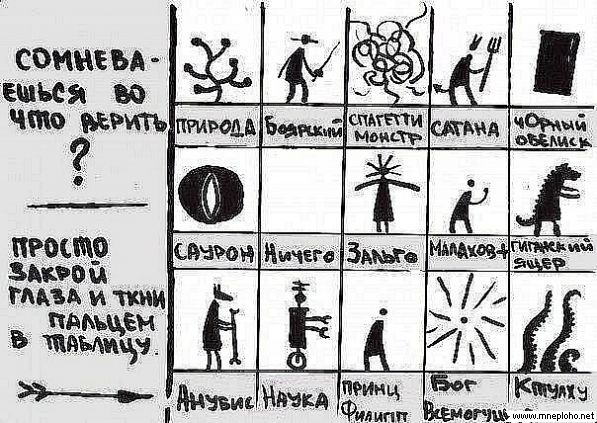 СОМНЕВА-
ЕШЬСЯ ВО
ЧТО ВЕРИТЬ
?
ПРОСТО
ЗАКРОЙ
ГЛАЗА И ТКНИ
ПАЛЬЦЕМ
В ТАБЛИЦУ.
ПРИРОДА
БОЯРСКИЙ
СПАГЕТТИ
МОНСТР
САТАНА
ЧОРНЫЙ
ОБЕЛИСК
САУРОН
НИЧЕГО
ЗАЛЬГО
МАЛАХОВ+
ГИГАНСКИЙ
ЯЩЕР
АНУБИС
НАУКА
ПРИНЦ
ФИЛИПП
БОГ
ВСЕМОГУЩ
КТУЛХУ
www.mneploho.net